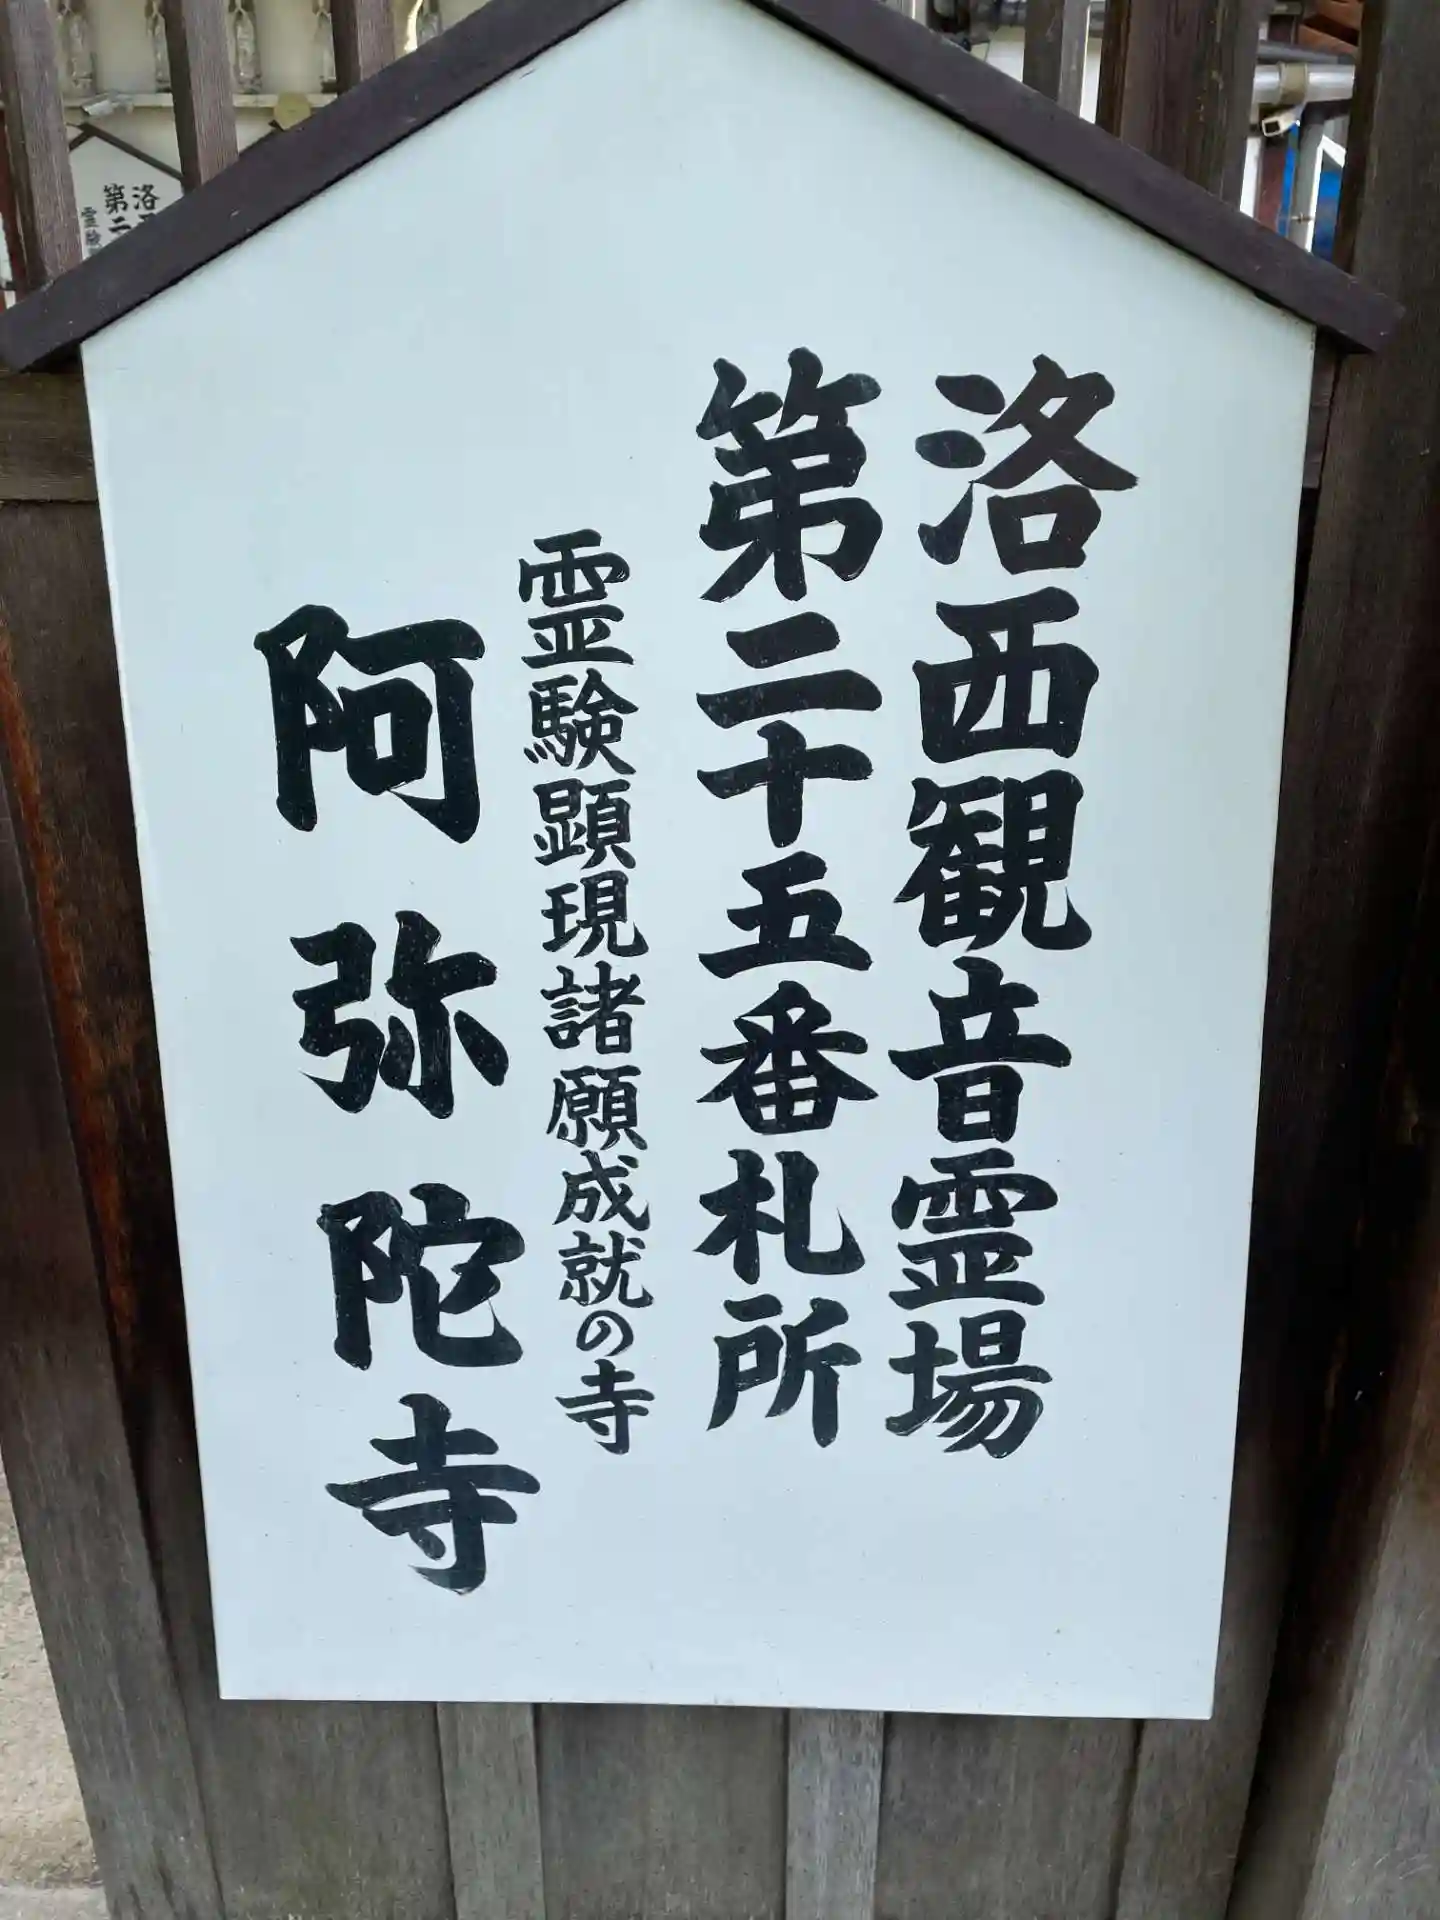 洛西観音霊場
第二十五番札所
霊験顕現諸願成就の寺
阿弥陀寺
洛
第二
霊験